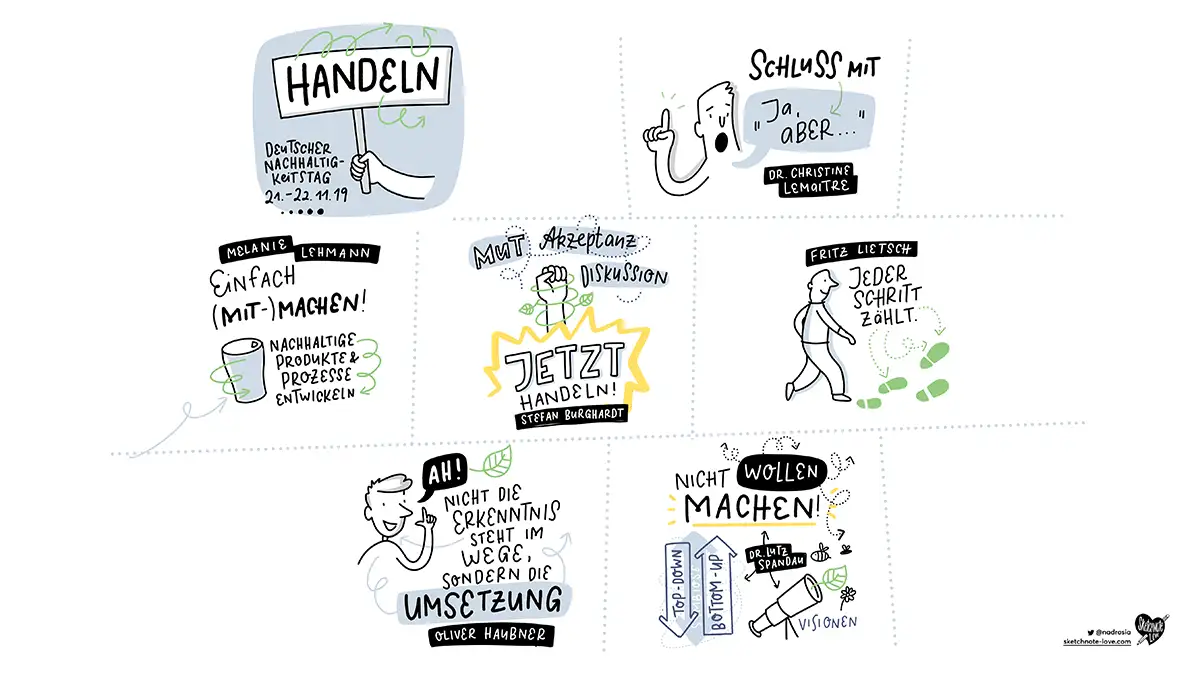 HANDELN
DEUTSCHER
NACHHALTIG-
KEITSTAG
21.-22.11.19
SCHLUSS MIT
"Ja,
ABER..."
DR. CHRISTINE
LEMAITRE
MELANIE LEHMANN
EINFACH
(MIT-)MACHEN!
NACHHALTIGE
PRODUKTE &
PROZESSE
ENTWICKELN
MUT Akzeptanz
DISKUSSION
JETZT
HANDELN!
STEFAN BURGHARDT
FRITZ LIETSCH
JEDER
SCHRITT
ZÄHLT.
AH!
NICHT DIE
ERKENNTNIS
STEHT IM
WEGE,
SONDERN DIE
UMSETZUNG
OLIVER HAUBNER
NICHT WOLLEN
MACHEN!
TOP-DOWN
BOTTOM-UP
DR. LUTZ
SPANDAU
VISIONEN
@nadrosia
sketchnote-love.com
Sketchnote
Love